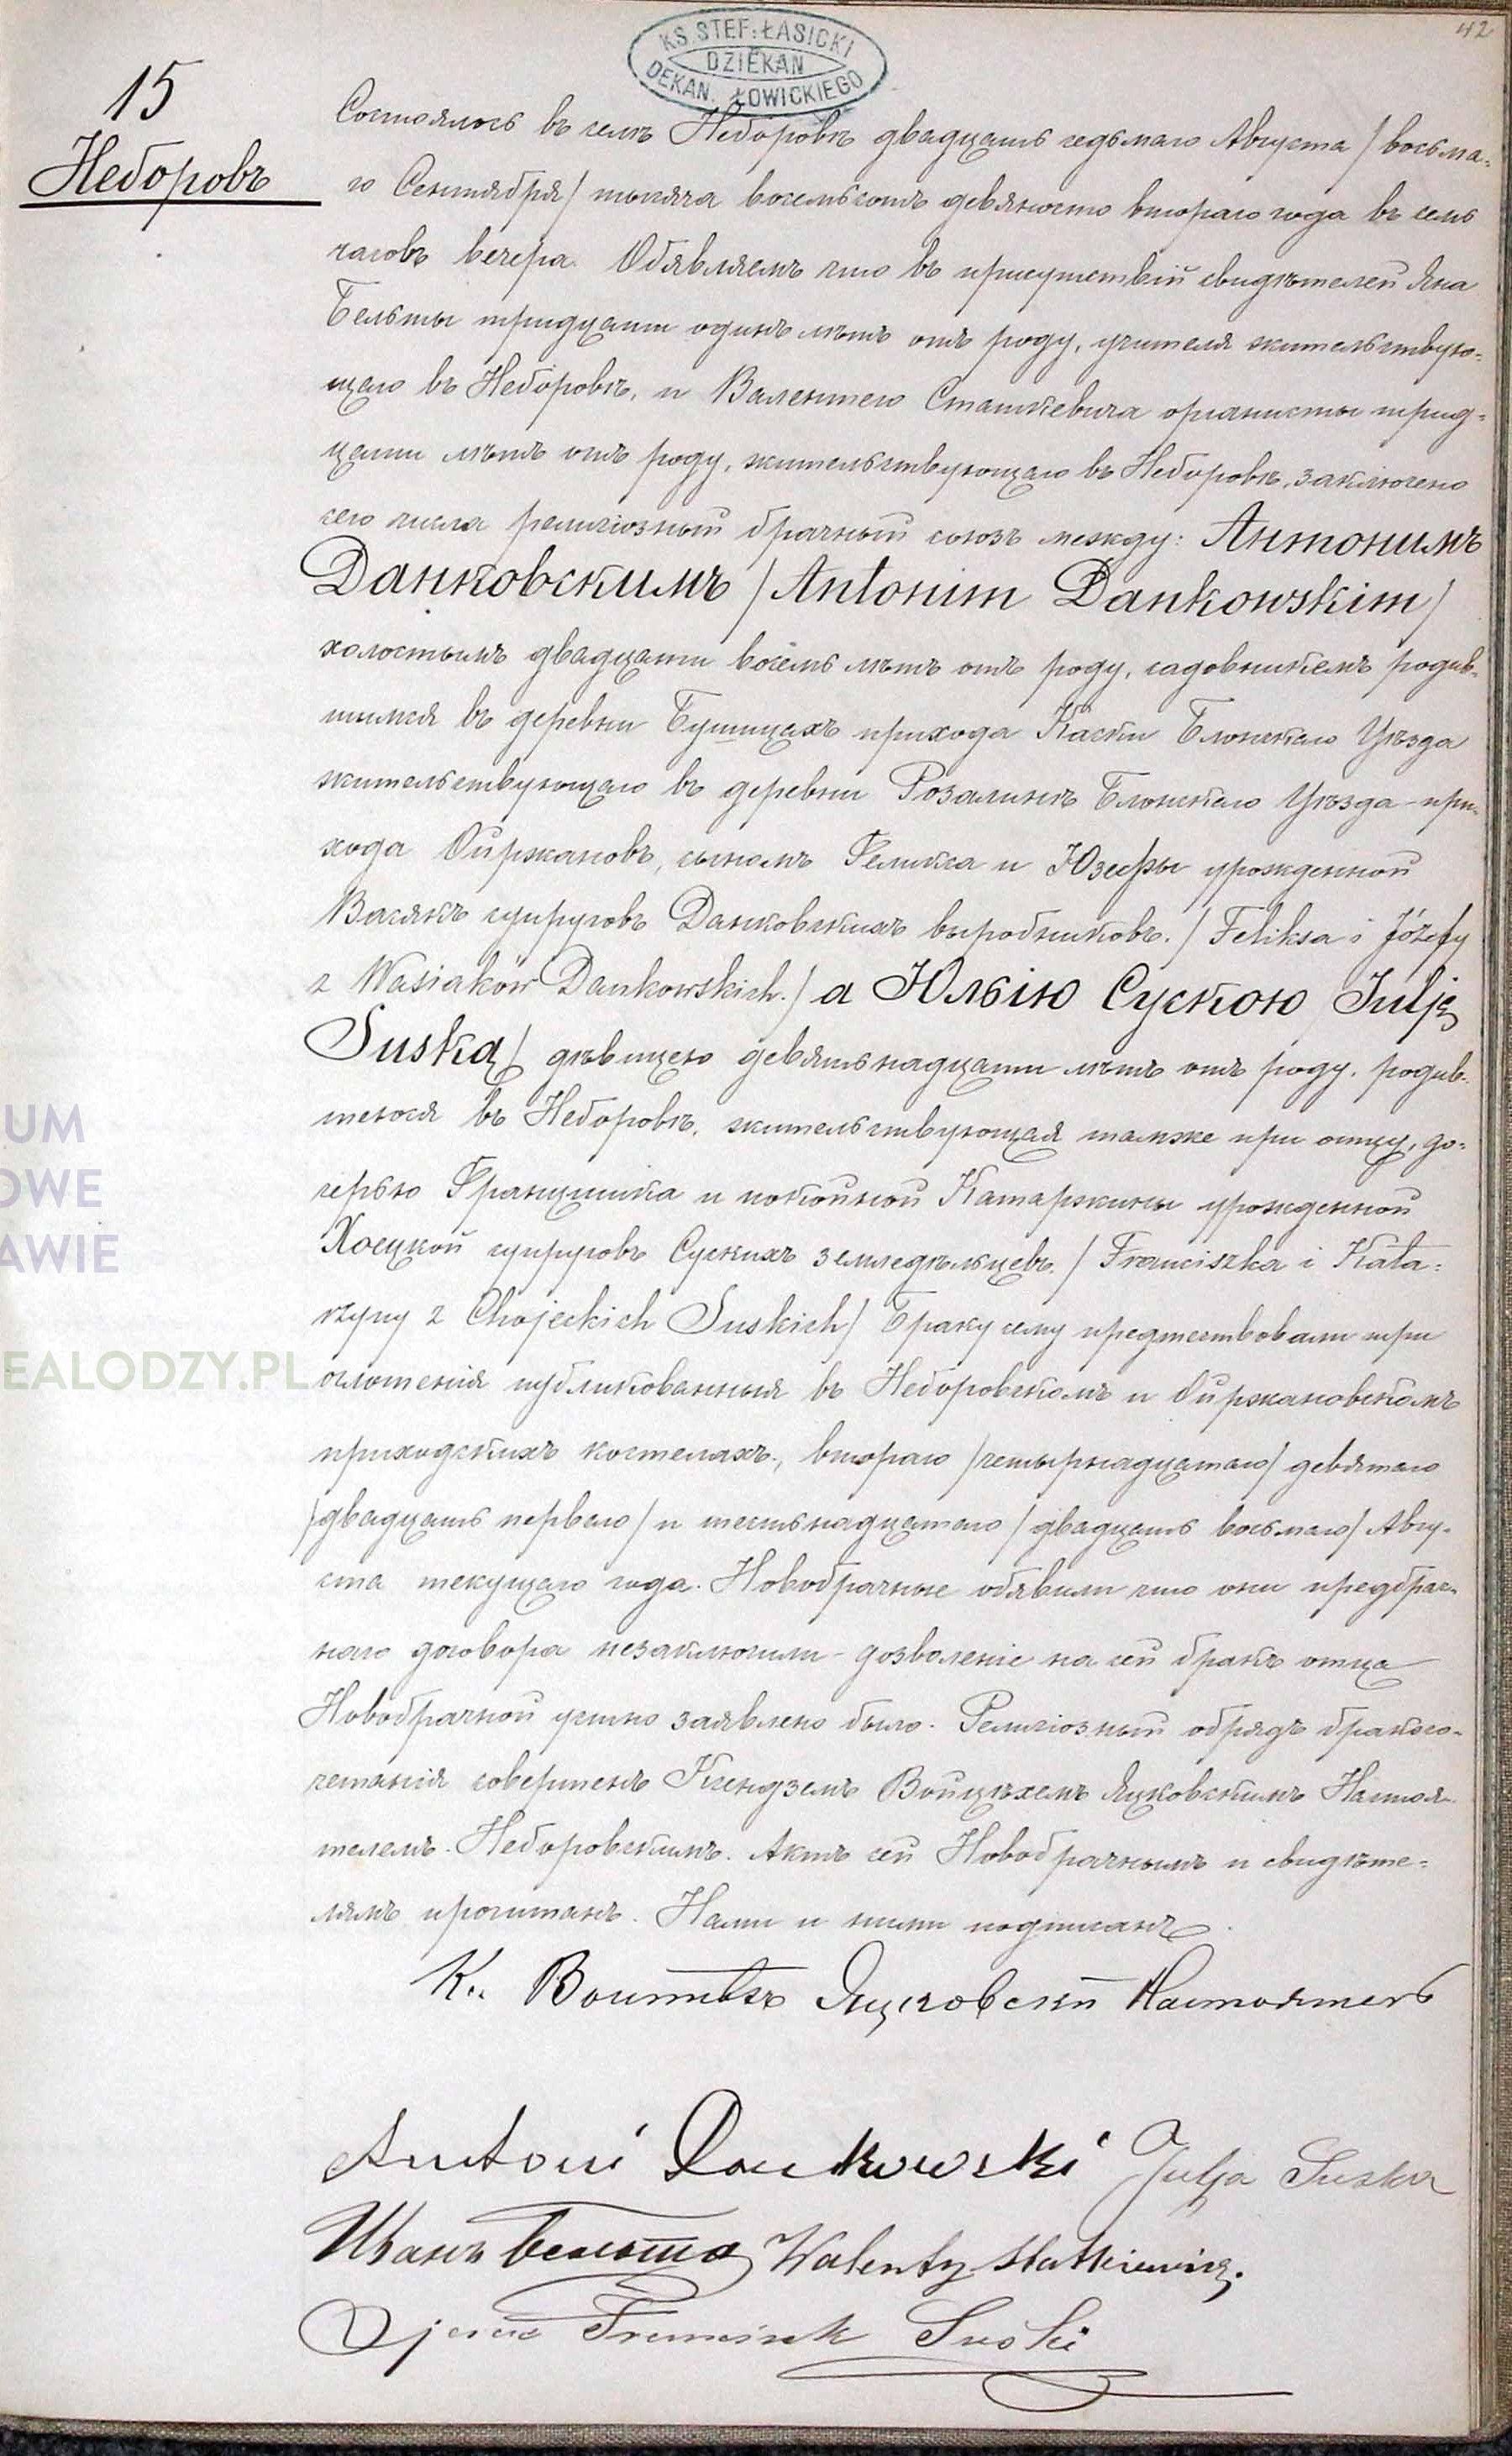 42
KS. STEF. ŁASICKI
DZIEKAN
DEKAN. ŁOWICKIEGO
15
Неборовъ
Состоялось въ селѣ Неборовѣ двадцать седьмаго Августа / восьма-
го Сентября / тысяча восемьсотъ девяносто втораго года въ семь
часовъ вечера. Обявляемъ что въ присутствіи свидѣтелей Яна
Бельты тридцати одинъ лѣтъ отъ роду, учителя жительствую-
щаго въ Неборовѣ, и Валентего Статкевича органисты трид-
цати лѣтъ отъ роду, жительствующаго въ Неборовѣ, заключено
сего числа религіозный брачный союзъ между: Антонимъ
Данковскимъ / Antonim Dankowskim /
холостымъ двадцати восемь лѣтъ отъ роду, садовникемъ родив-
шимся въ деревни прихода Каски Блонскаго Уѣзда
жительствующаго въ деревни Розалинѣ Блонскаго Уѣзда при-
хода Ойржановъ, сыномъ Феликса и Юзефы урожденной
Васякъ супруговъ Данковскихъ выробниковъ. / Feliksa i Józefy
z Wasiaków Dankowskich. / а Юльію Сускою / Julję
Suską / дѣвицею девятьнадцати лѣтъ отъ роду, родив-
шеюся въ Неборовѣ, жительствующая тамже при отцу, до-
черью Францишка и покойной Катаржины урожденной
Хоецкой супруговъ Сускихъ земледѣльцевъ. / Franciszka i Kata-
rzyny z Chojeckich Suskich / Браку сему предшествовали три
оглошенія публикованныя въ Неборовскомъ и Ойржановскомъ
приходскихъ костелахъ, втораго / четырнадцатаго / девятаго
/ двадцать перваго / и шестьнадцатаго / двадцать восьмаго / Авгу-
ста текущаго года. Новобрачные обявили что они предбрач-
наго договора незаключили - дозволеніе на сей бракъ отца
Новобрачной устно заявлено было. Религіозный обрядъ бракосо-
четанія совершенъ Ксендземъ Войцѣхемъ Яцковскимъ Настоя-
телемъ Неборовскимъ. Актъ сей Новобрачнымъ и свидѣте-
лямъ прочитанъ. Нами и ними подписанъ.
К. Яцковскій Настоятель
Antoni Dankowski Julja Suska
Иванъ Бельта Walenty Statkiewicz.
Ojciec Franciszek Suski
UM
OWE
AWIE
EALODZY.PL